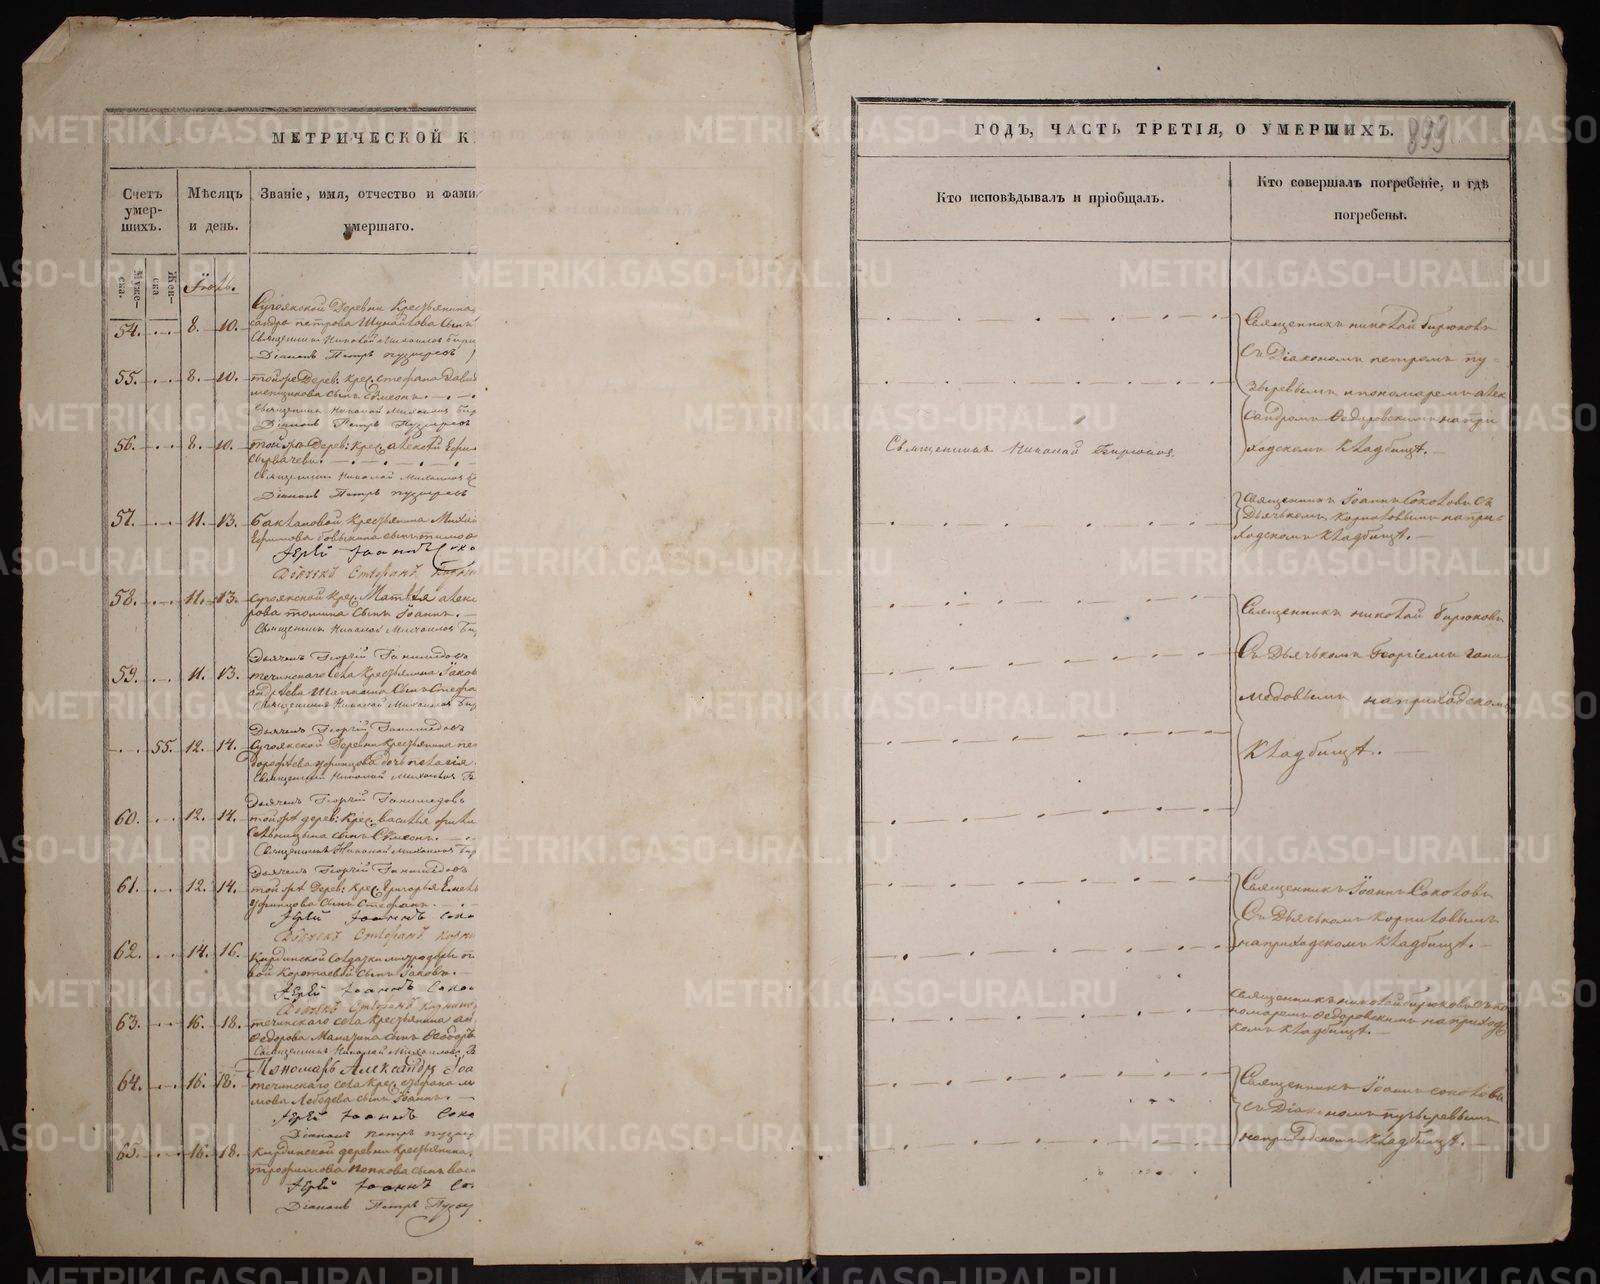 МЕТРИЧЕСКОЙ К
Счетъ умер-шихъ.
Мѣсяцъ и день.
Званіе, имя, отчество и фами
умершаго.
Муже-ска.
Жен-ска
Іюль.
54. 8. 10. Сугоякской Деревни Крестьянина
сандра петрова Шумакова Сынъ
Священникъ Николай Михаиловъ Бирю
Діаконъ Петръ Пузыревъ
55. 8. 10. тойже Дерев: Крес. стефана Давид
сынъ Сѵмеонъ.
Священникъ Николай Михаиловъ Бир
Діаконъ Петръ Пузыревъ
56. 8. 10. тойже Дерев: Крес. алексѣй Ефи
Священникъ Николай Михаиловъ
Діаконъ Петръ Пузыревъ
57. 11. 13. Баклановой Крестьянина Михаи
Ефимова сынъ
Іерей Іоаннъ Соко
Дьячекъ Стефанъ Корни
58. 11. 13. Сугоякской Крес. Матвѣя алекс
рова сынъ Іоаннъ.
Священникъ Николай Михаиловъ Би
Дьячекъ Георгій Ганимедовъ
59. 11. 13. течинскаго Села Крестьянина Іаков
андрѣева Сынъ Стефа
Священникъ Николай Михаиловъ Бир
Дьячекъ Георгій Ганимедовъ
55. 12. 14. Сугоякской Деревни Крестьянина пе
дорофѣева дочь пелагія.
Священникъ Николай Михаиловъ Б
Дьячекъ Георгій Ганимедовъ
60. 12. 14. тойже дерев: Крес. василія
сынъ Сѵмеонъ.
Священникъ Николай Михаиловъ Бир
Дьячекъ Георгій Ганимедовъ
61. 12. 14. тойже Дерев: Крес. Григорья
сынъ Стефанъ.
Іерей Іоаннъ Соко
Дьячекъ Стефанъ Корни
62. 14. 16. Кирдинской Солдатки
вой Коротаевой сынъ Іаковъ.
Іерей Іоаннъ Соко
Дьячекъ Стефанъ Корнило
63. 16. 18. течинскаго села Крестьянина ан
Федорова сынъ Ѳеодоръ
Священникъ Николай Михаиловъ Б
Пономарь Александръ Іоа
64. 16. 18. течинскаго села Крес. стефана
мова Лебедева сынъ Іоаннъ.
Іерей Іоаннъ Соко
Діаконъ Петръ Пузыр
65. 16. 18. Кирдинской деревни крестьянина
трофимова Попкова сынъ васи
Іерей Іоаннъ Со
Діаконъ Петръ Пузыр
ГОДЪ, ЧАСТЬ ТРЕТІЯ, О УМЕРШИХЪ.
899
Кто исповѣдывалъ и пріобщалъ.
Кто совершалъ погребеніе, и гдѣ
погребены.
Священникъ николай бирюковъ
Съ Діакономъ петромъ пу-
зыревымъ и пономаремъ алек
сандромъ Федоровскимъ на при
ходскомъ Кладбищѣ.
Священникъ Николай Бирюковъ
Священникъ Іоаннъ Соколовъ съ
Дьячькомъ Корниловымъ на при-
ходскомъ Кладбищѣ.
Священникъ николай бирюковъ
Съ Дьячькомъ Георгіемъ гани
медовымъ на приходскомъ
Кладбищѣ.
Священникъ Іоаннъ Соколовъ
Съ Дьячькомъ Корниловымъ
на приходскомъ Кладбищѣ.
Священникъ николай бирюковъ съ по
номаремъ Федоровскимъ на приход
скомъ Кладбищѣ.
Священникъ Іоаннъ соколовъ
съ Діакономъ пузыревымъ
на приходскомъ Кладбищѣ.
METRIKI.GASO-URAL.RU